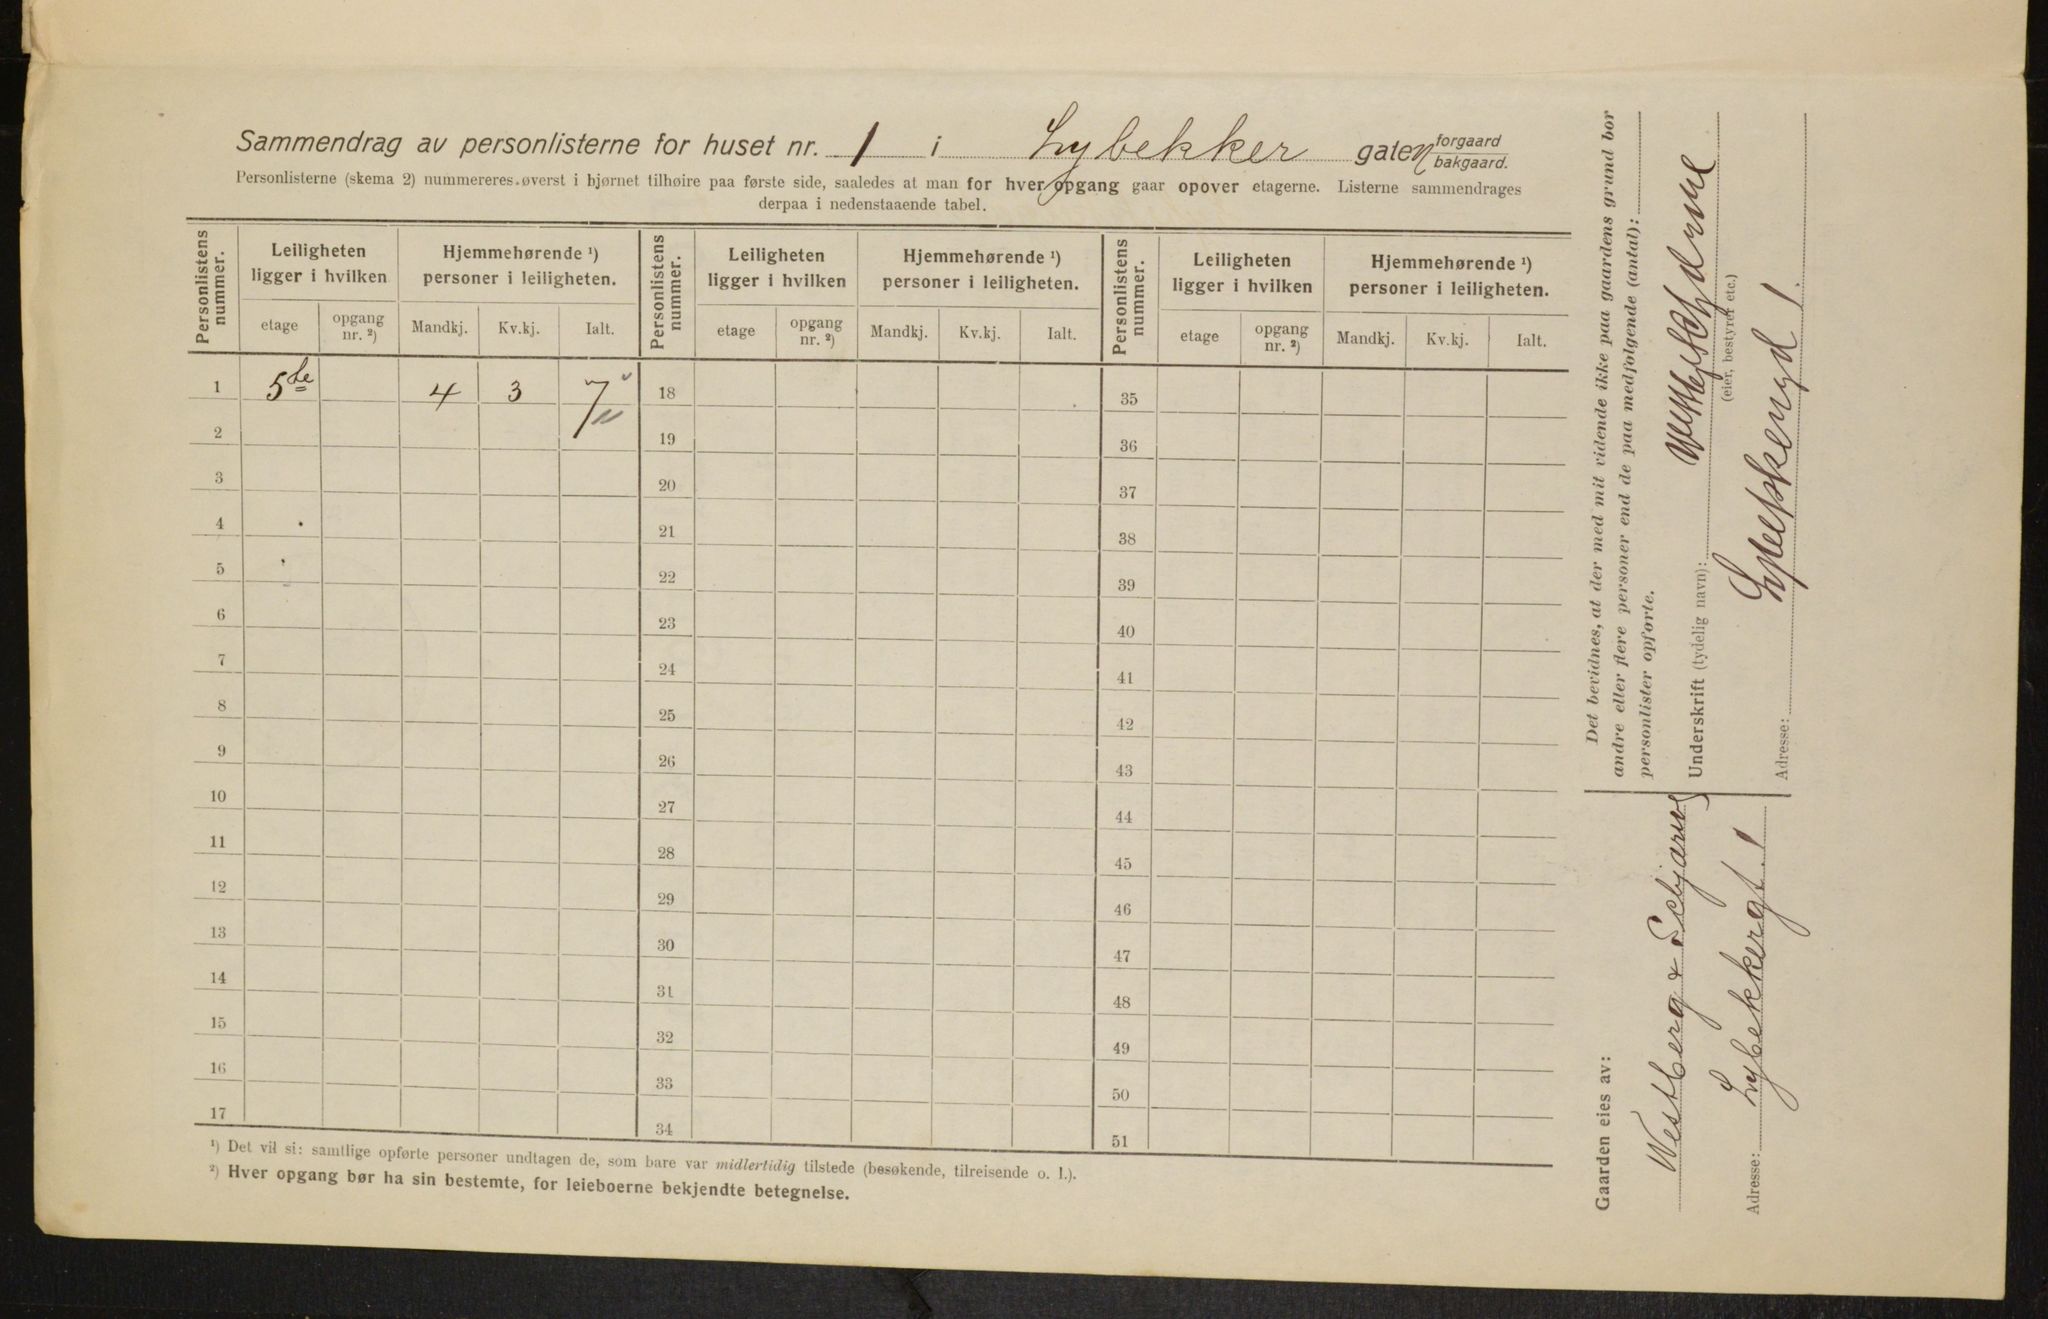 Sammendrag av personlisterne for huset nr. 1 i Lybekker gaten forgaard bakgaard.
Personlisterne (skema 2) nummereres øverst i hjørnet tilhøire paa første side, saaledes at man for hver opgang gaar opover etagerne. Listerne sammendrages
derpaa i nedenstaaende tabel.
Personlistens nummer. Leiligheten ligger i hvilken Hjemmehørende ¹) personer i leiligheten. Personlistens nummer. Leiligheten ligger i hvilken Hjemmehørende ¹) personer i leiligheten. Personlistens nummer. Leiligheten ligger i hvilken Hjemmehørende ¹) personer i leiligheten.
etage opgang nr. ²) Mandkj. Kv.kj. Ialt. etage opgang nr. ²) Mandkj. Kv.kj. Ialt. etage opgang nr. ²) Mandkj. Kv.kj. Ialt.
1 5te 4 3 7 18 35
2 19 36
3 20 37
4 21 38
5 22 39
6 23 40
7 24 41
8 25 42
9 26 43
10 27 44
11 28 45
12 29 46
13 30 47
14 31 48
15 32 49
16 33 50
17 34 51
¹) Det vil si: samtlige opførte personer undtagen de, som bare var midlertidig tilstede (besøkende, tilreisende o. l.).
²) Hver opgang bør ha sin bestemte, for leieboerne bekjendte betegnelse.
Det bevidnes, at der med mit vidende ikke paa gaardens grund bor
andre eller flere personer end de paa medfølgende (antal):
personlister opførte.
Underskrift (tydelig navn):
(eier, bestyrer etc.)
Adresse: 1.
Gaarden eies av:
Westberg &
Adresse: Lybekkergt. 1